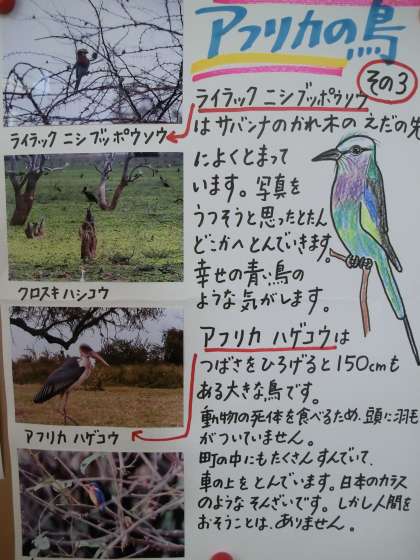 アフリカの鳥
その3
ライラック ニシブッポウソウ
はサバンナのかれ木のえだの先
によくとまって
います。写真を
うつそうと思ったとたん
どこかへとんでいきます
幸せの青い鳥の
ような気がします。
アフリカ ハゲコウは
つばさをひろげると150cmも
ある大きな鳥です。
動物の死体を食べるため、頭に羽毛
がついていません。
町の中にもたくさんすんでいて、
車の上をとんでいます。日本のカラス
のようなそんざいです。しかし人間を
おそうことは、ありません。
ライラック ニシブッポウソウ
クロスキハシコウ
アフリカ ハゲコウ